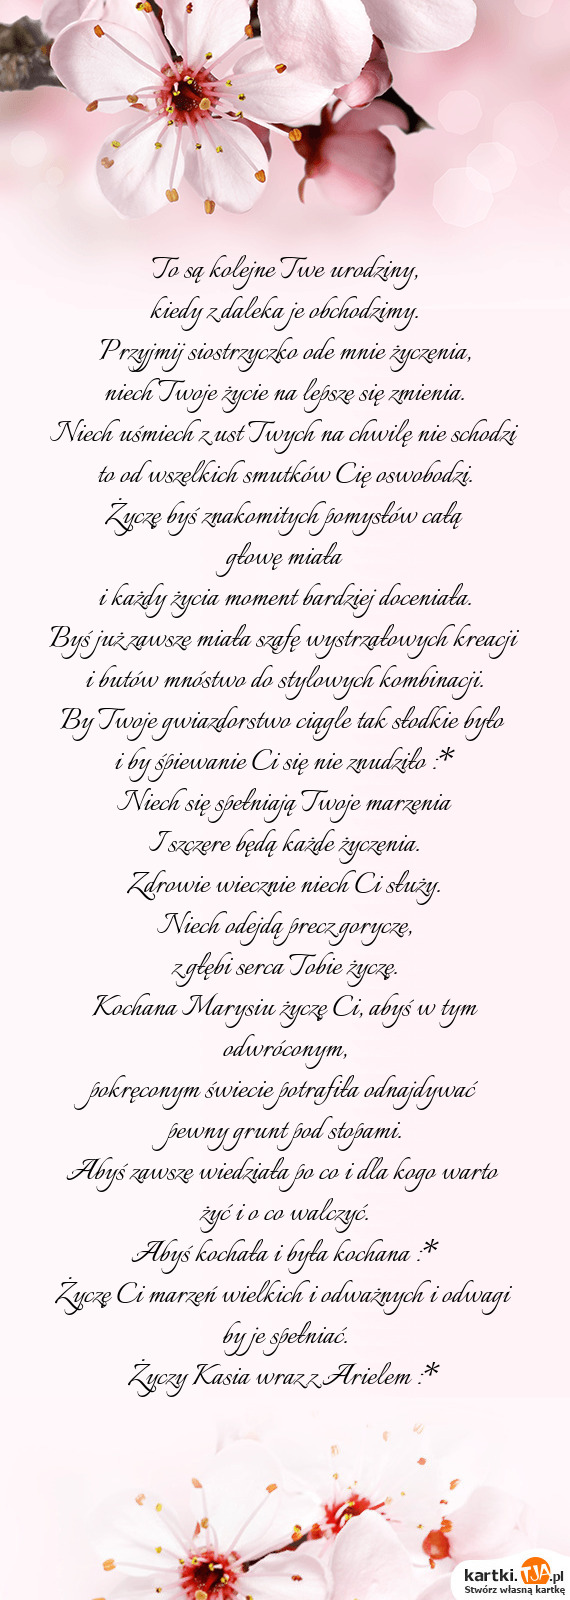 To są kolejne Twe urodziny,
kiedy z daleka je obchodzimy.
Przyjmij siostrzyczko ode mnie życzenia,
niech Twoje życie na lepsze się zmienia.
Niech uśmiech z ust Twych na chwilę nie schodzi
to od wszelkich smutków Cię oswobodzi.
Życzę byś znakomitych pomysłów całą
głowę miała
i każdy życia moment bardziej doceniała.
Byś już zawsze miała szafę wystrzałowych kreacji
i butów mnóstwo do stylowych kombinacji.
By Twoje gwiazdorstwo ciągle tak słodkie było
i by śpiewanie Ci się nie znudziło :*
Niech się spełniają Twoje marzenia
I szczere będą każde życzenia.
Zdrowie wiecznie niech Ci służy.
Niech odejdą precz gorycze,
z głębi serca Tobie życzę.
Kochana Marysiu życzę Ci, abyś w tym
odwróconym,
pokręconym świecie potrafiła odnajdywać
pewny grunt pod stopami.
Abyś zawsze wiedziała po co i dla kogo warto
żyć i o co walczyć.
Abyś kochała i była kochana :*
Życzę Ci marzeń wielkich i odważnych i odwagi
by je spełniać.
Życzy Kasia wraz z Arielem :*
kartki.TJA.pl
Stwórz własną kartkę